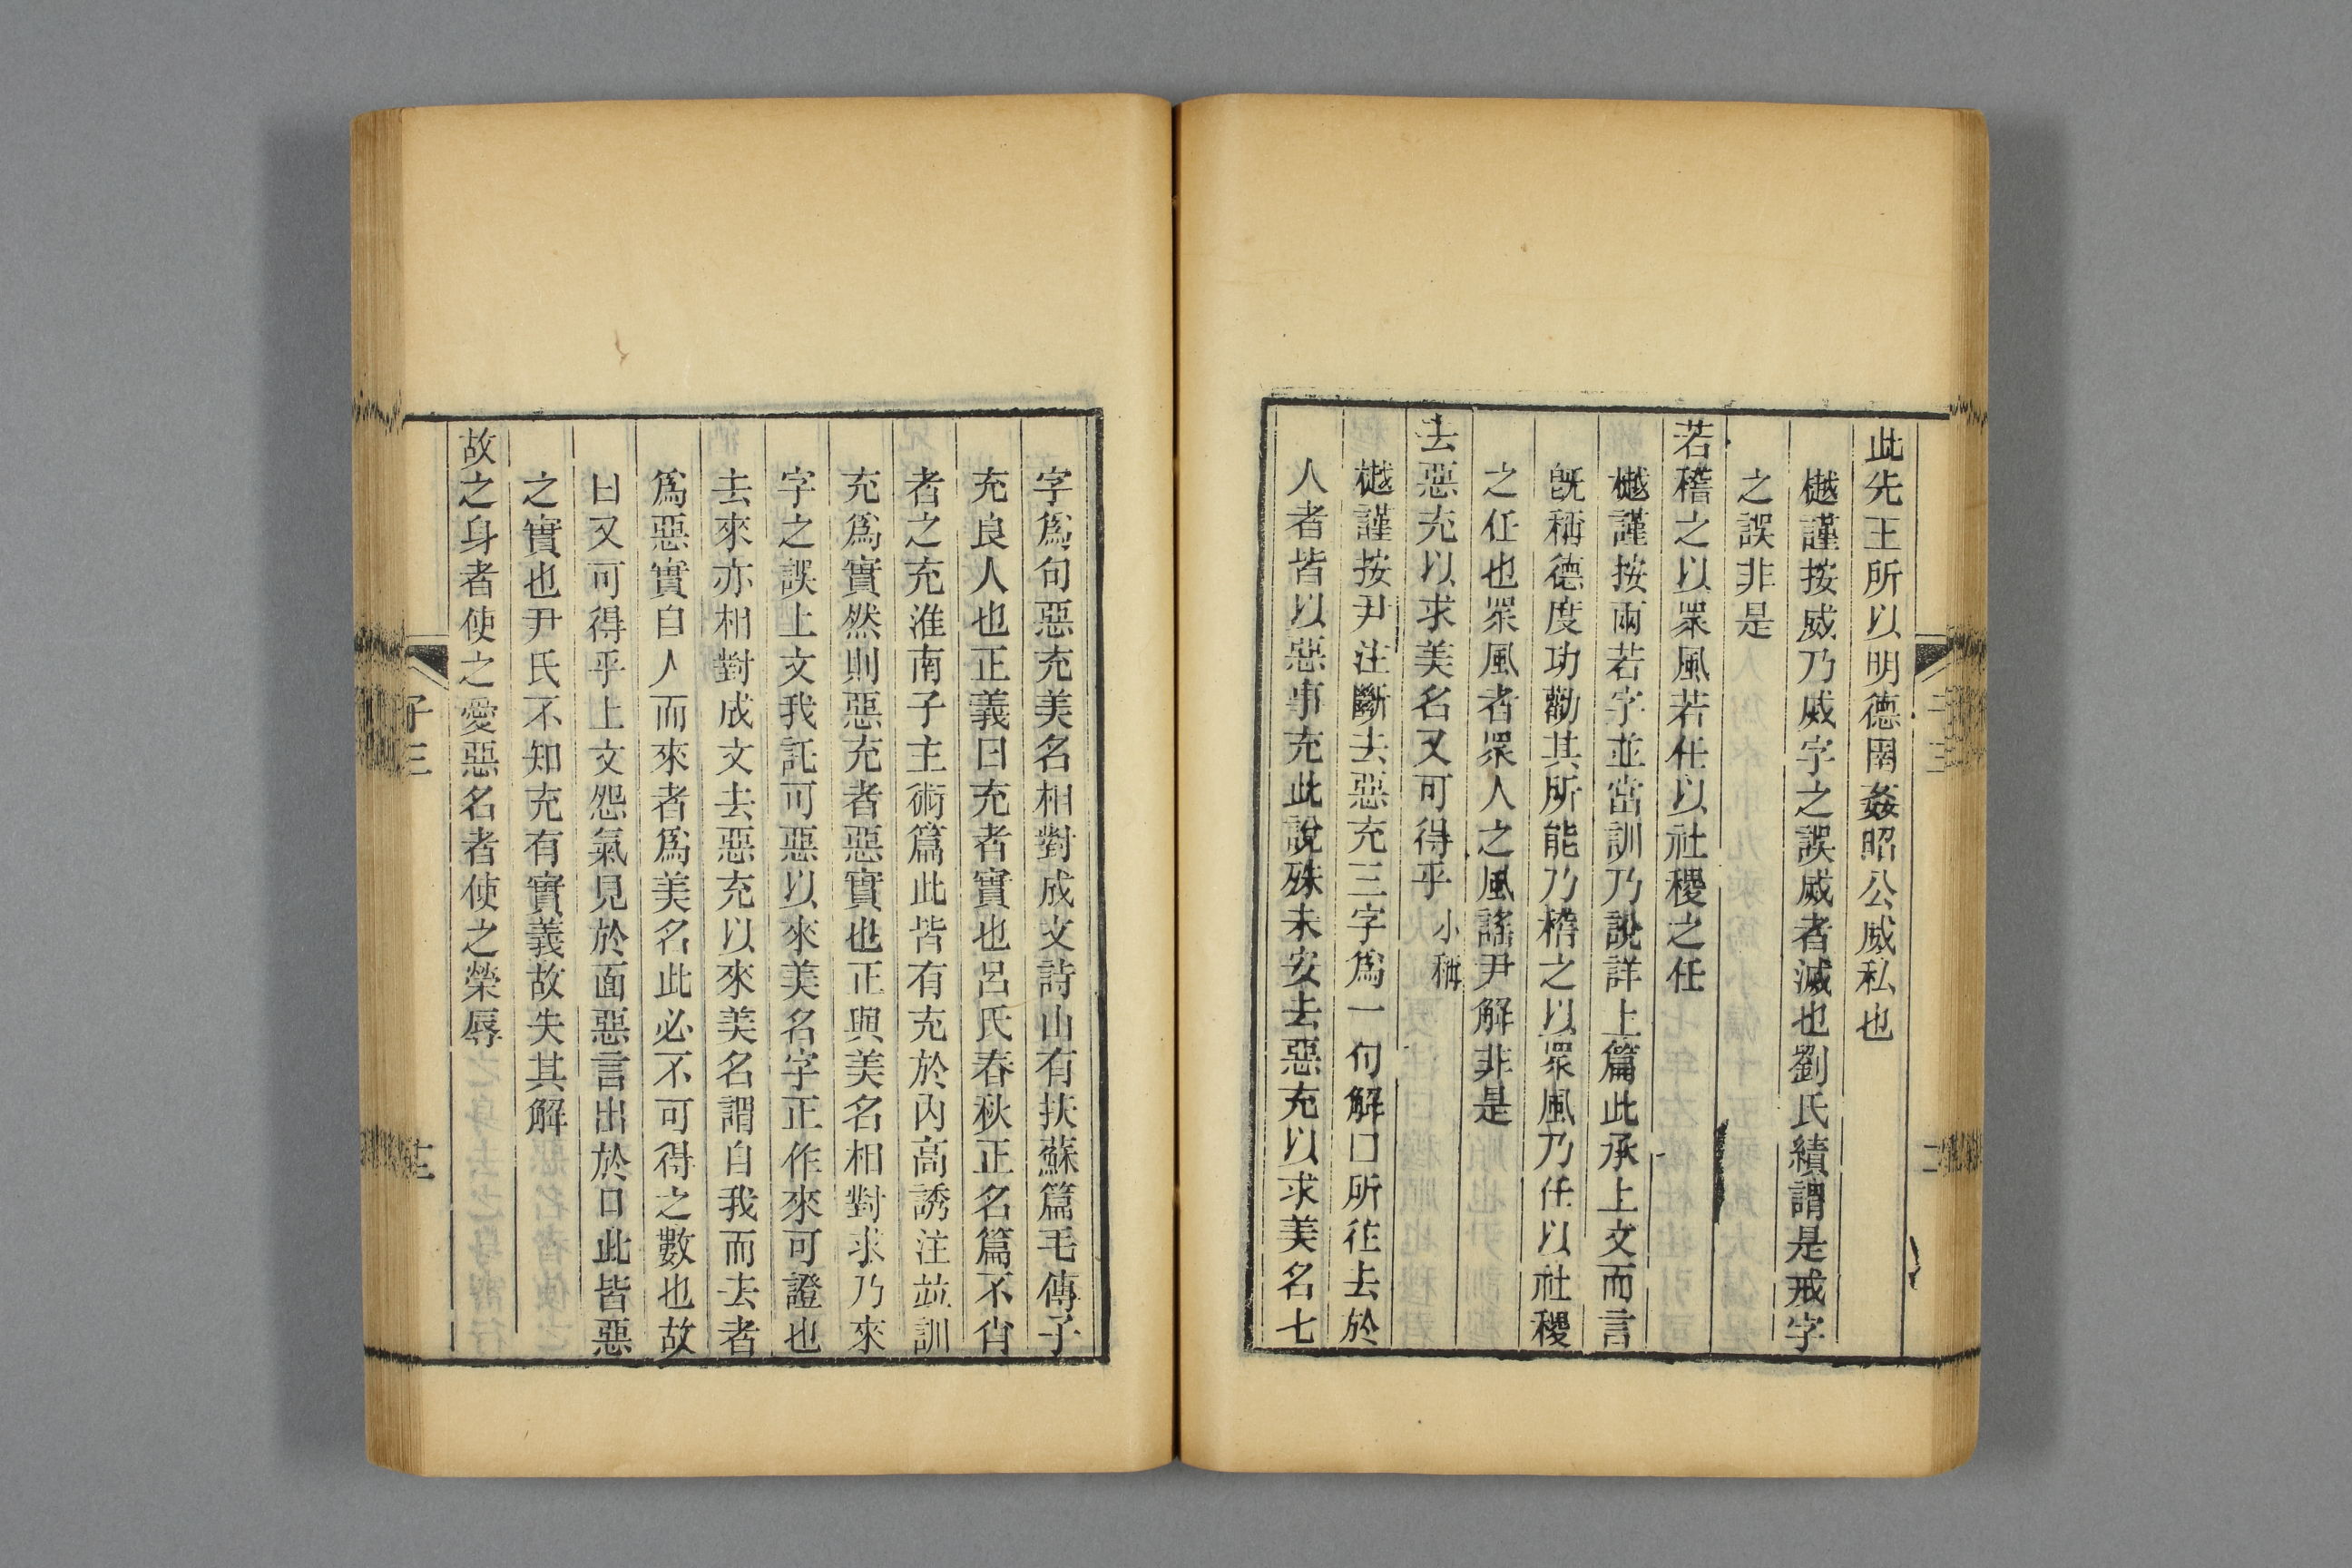 此先王所以明德圉姦昭公威私也
樾謹按威乃烕字之誤烕者滅也劉氏績謂是戒字
之誤非是
若稽之以眾風若任以社稷之任
樾謹按兩若字並當訓乃說詳上篇此承上文而言
旣稱德度功勸其所能乃稽之以眾風乃任以社稷
之任也眾風者眾人之風謠尹解非是
去惡充以求美名又可得乎 小稱
樾謹按尹注斷去惡充三字爲一句解曰所往去於
人者皆以惡事充此說殊未安去惡充以求美名七
字爲句惡充美名相對成文詩山有扶蘇篇毛傳子
充良人也正義曰充者實也呂氏春秋正名篇不肖
者之充淮南子主術篇此皆有充於內高誘注並訓
充爲實然則惡充者惡實也正與美名相對求乃來
字之誤上文我託可惡以來美名字正作來可證也
去來亦相對成文去惡充以來美名謂自我而去者
爲惡實自人而來者爲美名此必不可得之數也故
曰又可得乎上文怨氣見於面惡言出於口此皆惡
之實也尹氏不知充有實義故失其解
故之身者使之愛惡名者使之榮辱
子三